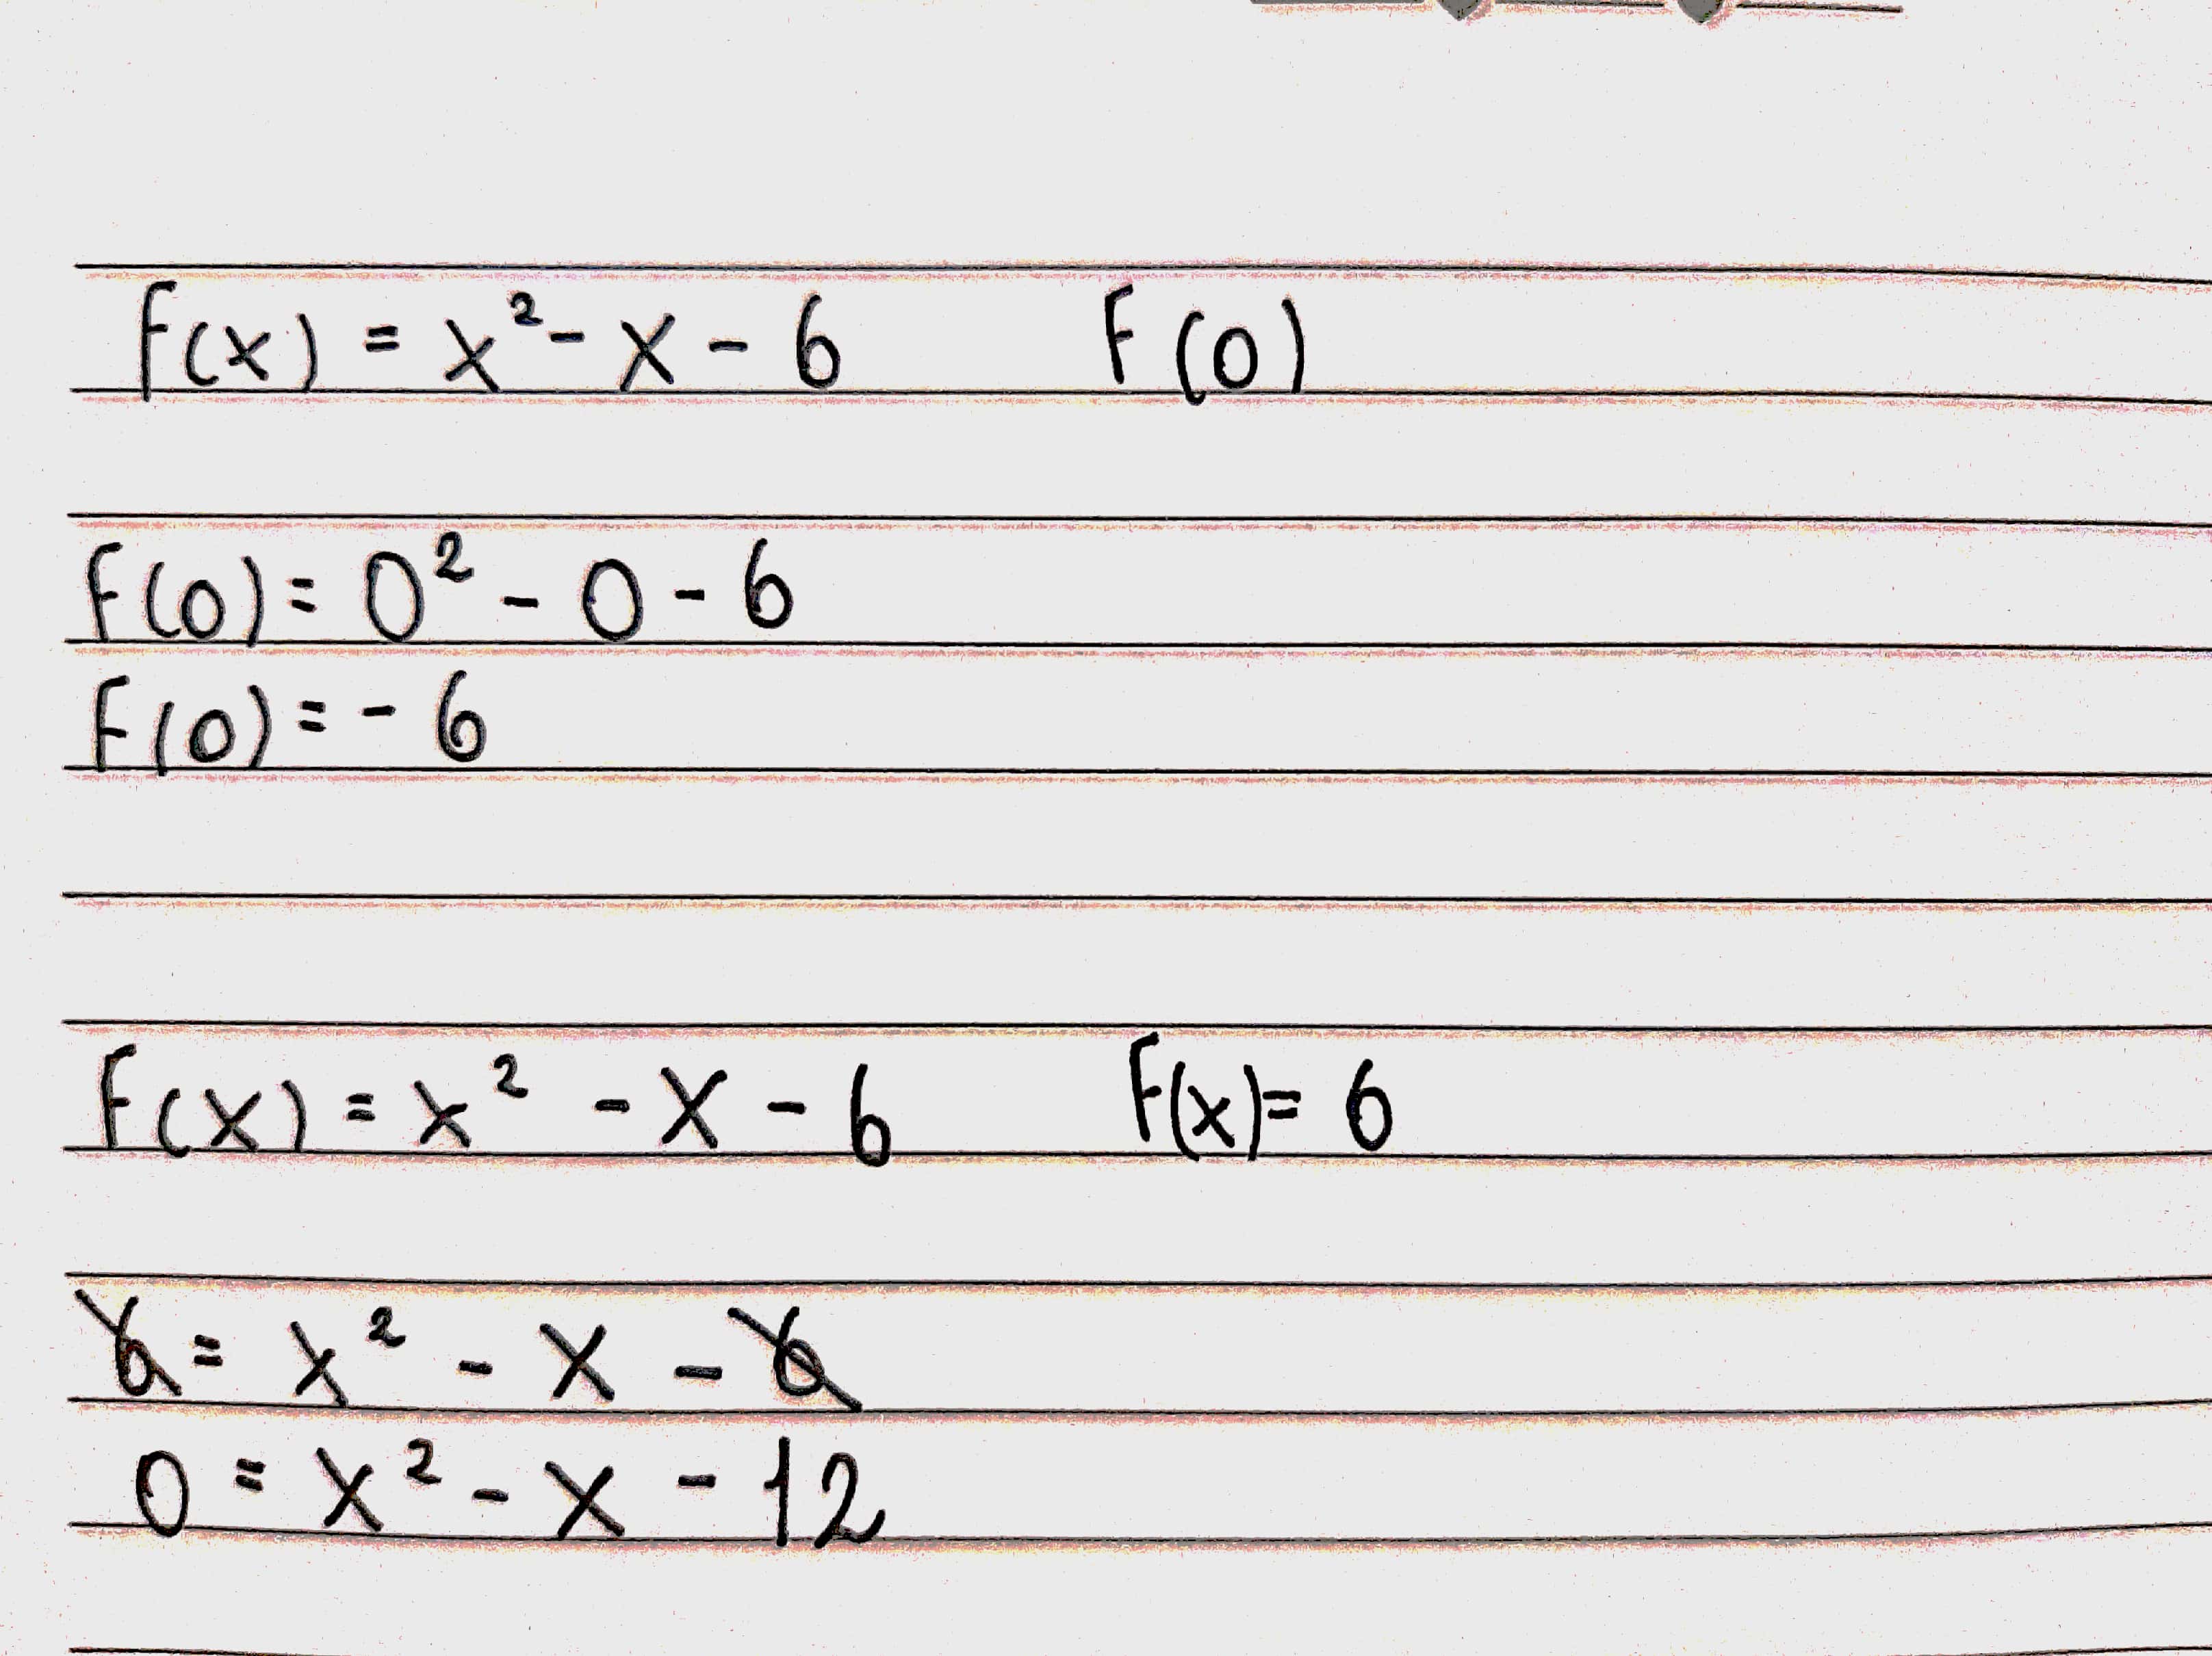 F(x) = x² - x - 6 F(0)
F(0) = 0² - 0 - 6
F(0) = - 6
F(x) = x² - x - 6 F(x) = 6
6 = x² - x - 6
0 = x² - x - 12